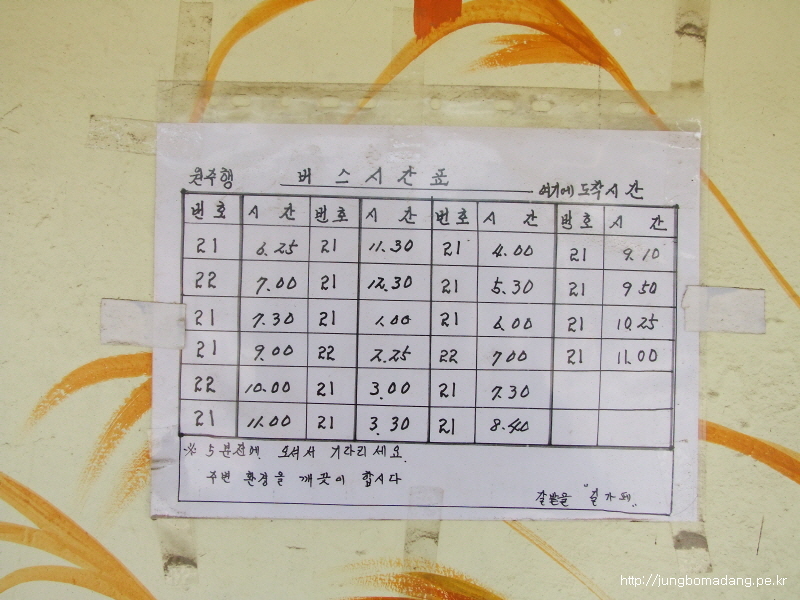 원주행 버스시간표 여기에 도착시간
번호 시간 번호 시간 번호 시간 번호 시간
21 6.25 21 11.30 21 4.00 21 9.10
22 7.00 21 12.30 21 5.30 21 9 50
21 7.30 21 1.00 21 6.00 21 10.25
21 9.00 22 2.25 22 7 00 21 11.00
22 10.00 21 3.00 21 7.30
21 11.00 21 3.30 21 8.40
※ 5분전에 오셔서 기다리세요.
주변 환경을 깨끗이 합시다
길가페.
http://jungbomadang.pe.kr